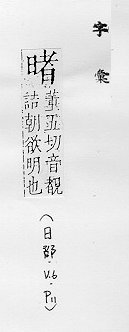 字彙
暏
董五切音覩
詰朝欲明也
（日部·V.6·P11）